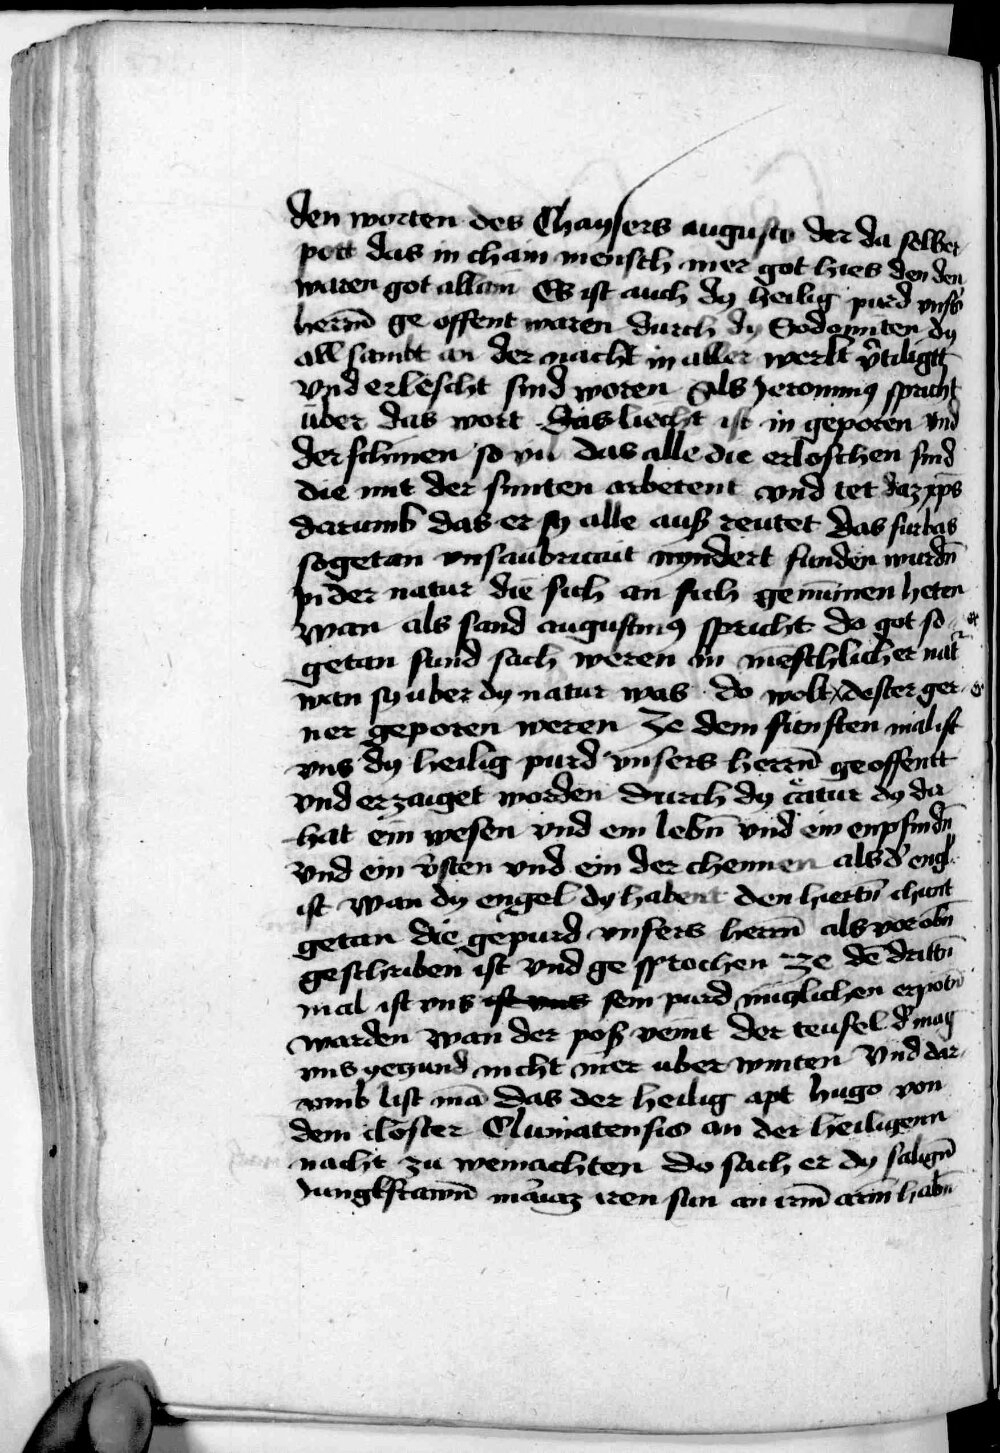 den worten des Chaysers augusto der da selber
pott das in chain mensch mer got hies den den
waren got allain Es ist auch dy heilig purd vnsers
herrñ ge offent waren durch dy Sodomiten dy
all sambt an der nacht in aller werlt v̉tiligtt
vnd erlescht sind woren Als Jeronimꝰ spricht
über das wort Das liecht ist in geporen vnd
der schinen so vil das alle die erloschen sind
die mit der sunten arbetent vnd tet daz xp̄s
darumb das er sy alle auß reutet das furbas
sogetan vnsaubricait nyndert funden wurdn̄
in der natur die sich an sich genūmen heten
wan als sand augustinꝰ spricht do got so
getan sund sach weren in meschlicher nat̉
wan sy uber dy natur was do wolt er dester ger
ner geporen weren Ze dem funften mal ist
vns dy heilig purd vnsers herrñ geoffentt
vnd erzaiget worden durch dy creatur dy da
hat ein wesen vnd ein lebn̄ vnd ein enpfindn̄
vnd ein v̉sten vnd ein der chennen als d̉ engl
ist wan dy engel dy habent den hiertn̄ chunt
getan die gepurd vnsers herrñ als vor obn̄
geschriben ist vnd ge sprochen Ze dē drittn̄
mal ist vns ist vns sein purd nuczlichen erpotn̄
warden wan der poß veint der teufel d̉ mag
vns yeczund nicht mer uber winten Vnd dar
vmb list mā das der heilig apt hugo von
dem closter Cluniatensis an der heiligenn
nacht zu weinachten do sach er dy salign̄
Jungkfrawn̄ mariaz iren sun an irm̄ arm habn̄